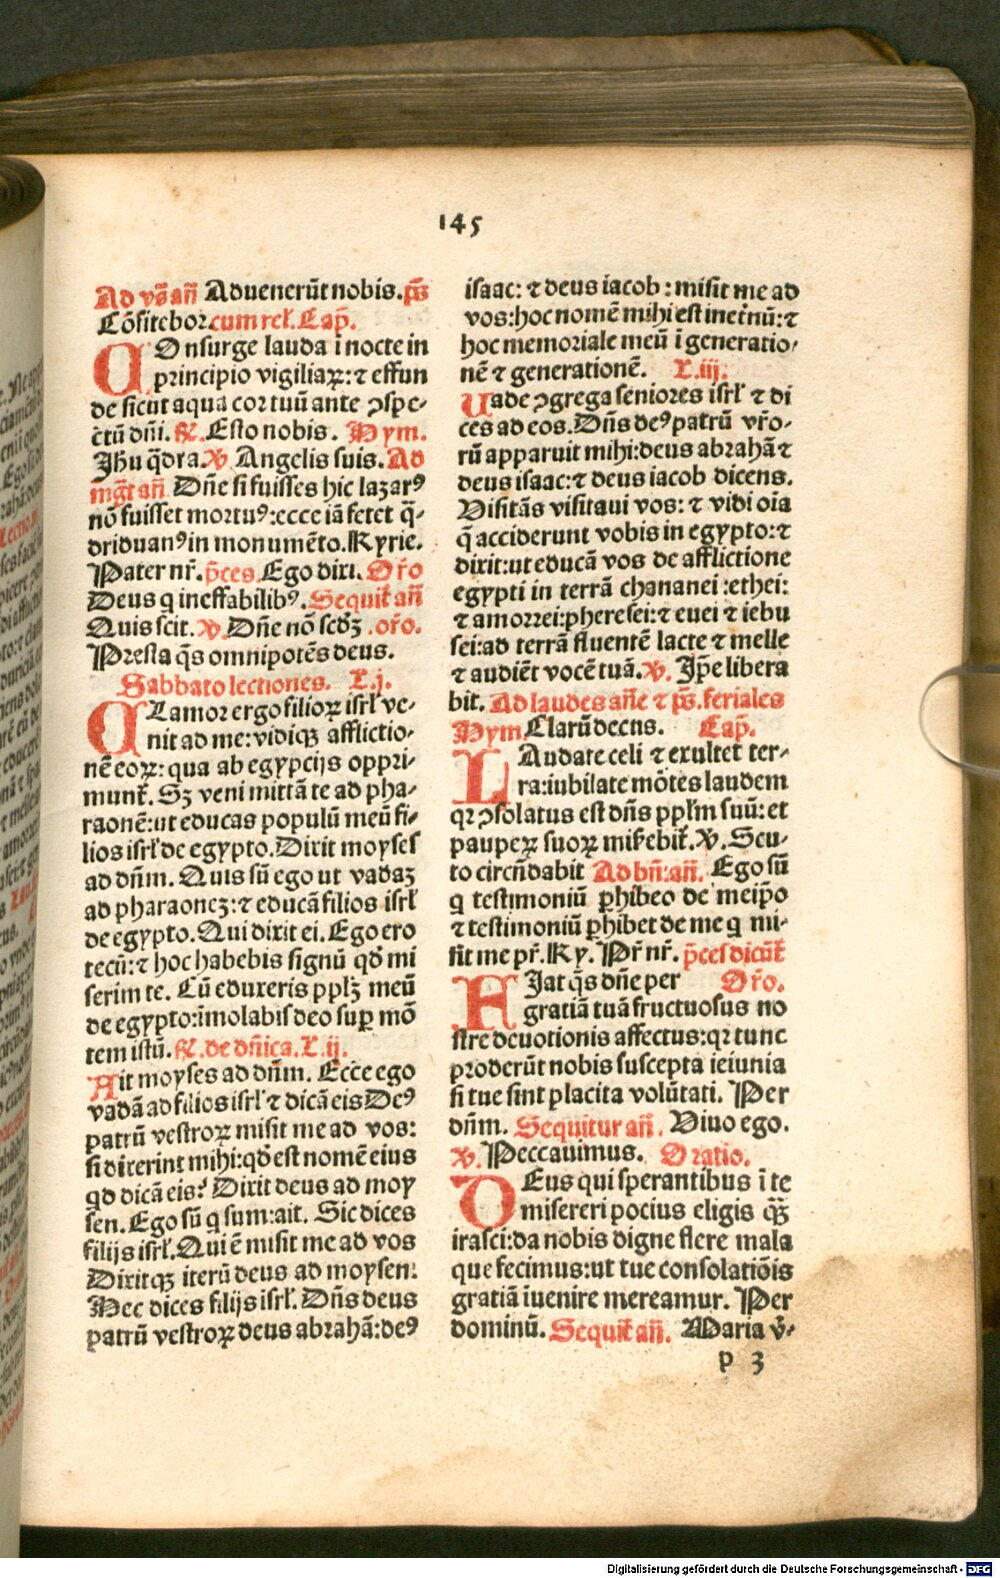 145
Ad vs̃ añ Aduenerũt nobis. ps̃
Cõfitebor. cum rel̃. Cap̃.
COnsurge lauda ĩ nocte in
principio vigiliaꝝ: ⁊ effun
de sicut aqua cor tuũ ante ꝯspe-
ctũ dñi. ℟. Esto nobis. Hym.
Jhũ q̃dra. ℣. Angelis suis. Ad
mg̃t añ Dñe si fuisses hic lazarꝰ
nõ fuisset mortuꝰ: ecce iã fetet q̃-
driduanꝰ in monumẽto. Kyrie.
Pater nr̃. p̃ces. Ego dixi. Or̃o
Deus q ineffabilibꝰ. Sequit̃ añ
Quis scit. ℣. Dñe nõ scd̃ꝫ. or̃o.
Presta q̃s omnipotẽs deus.
Sabbato lectiones. L. j.
CLamor ergo filioꝝ isrl̃ ve-
nit ad me: vidiqꝫ afflictio-
nẽ eoꝝ: qua ab egypcijs oppri-
munt̃. Sꝫ veni mittã te ad pha-
raonẽ: ut educas populũ meũ fi-
lios isrl̃ de egypto. Dixit moyses
ad dñm. Quis sũ ego ut vadaꝫ
ad pharaoneꝫ: ⁊ educã filios isrl̃
de egypto. Qui dixit ei. Ego ero
tecũ: ⁊ hoc habebis signũ qd̃ mi
serim te. Cũ eduxeris pplꝫ̃ meũ
de egypto: ĩmolabis deo sup̱ mõ
tem istũ. ℟. de dñica. L. ij.
Ait moyses ad dñm. Ecce ego
vadã ad filios isrl̃ ⁊ dicã eis Deꝰ
patrũ vestroꝝ misit me ad vos:
si dixerint mihi: qd̃ est nomẽ eius
qd̃ dicã eis? Dixit deus ad moy
sen. Ego sũ q sum: ait. Sic dices
filijs isrl̃. Qui ẽ misit me ad vos
Dixitqꝫ iterũ deus ad moysen:
Hec dices filijs isrl̃. Dñs deus
patrũ vestroꝝ deus abrahã: deꝰ
isaac: ⁊ deus iacob: misit me ad
vos: hoc nomẽ mihi est inet̃nũ: ⁊
hoc memoriale meũ ĩ generatio-
nẽ ⁊ generationẽ. L. iij.
Uade ꝯgrega seniores isrl̃ ⁊ di
ces ad eos. Dñs deꝰ patrũ vr̃o-
rũ apparuit mihi: deus abrahã ⁊
deus isaac: ⁊ deus iacob dicens.
Visitãs visitaui vos: ⁊ vidi oĩa
q̃ acciderunt vobis in egypto: ⁊
dixit: ut educã vos de afflictione
egypti in terrã chananei: ethei:
⁊ amorrei: pheresei: ⁊ euei ⁊ iebu
sei: ad terrã fluentẽ lacte ⁊ melle
⁊ audiẽt vocẽ tuã. ℣. Jp̃e libera
bit. Ad laudes añe ⁊ ps̃. feriales
Hym. Clarũ decus. Cap̃.
LAudate celi ⁊ exultet ter-
ra: iubilate mõtes laudem
qꝛ ꝯsolatus est dñs pplm̃ suũ: et
paupeꝝ suoꝝ miẽebit̃. ℣. Scu-
to circũdabit Ad bñ: añ. Ego sũ
q testimoniũ p̱hibeo de meip̃o
⁊ testimoniũ p̱hibet de me q mi-
sit me pr̃. Ky. Pr̃ nr̃. p̃ces dicũt̃
FIat q̃s dñe per Or̃o.
gratiã tuã fructuosus no
stre deuotionis affectus: qꝛ tunc
proderũt nobis suscepta ieiunia
si tue sint placita volũtati. Per
dñm. Sequitur añ. Viuo ego.
℣. Peccauimus. Oratio.
DEus qui sperantibus ĩ te
misereri pocius eligis qꝫ̃
irasci: da nobis digne flere mala
que fecimus: ut tue consolatiõis
gratiã iuenire mereamur. Per
dominũ. Sequit̃ añ. Maria v̓-
p 3
Digitalisierung gefördert durch die Deutsche Forschungsgemeinschaft - DFG